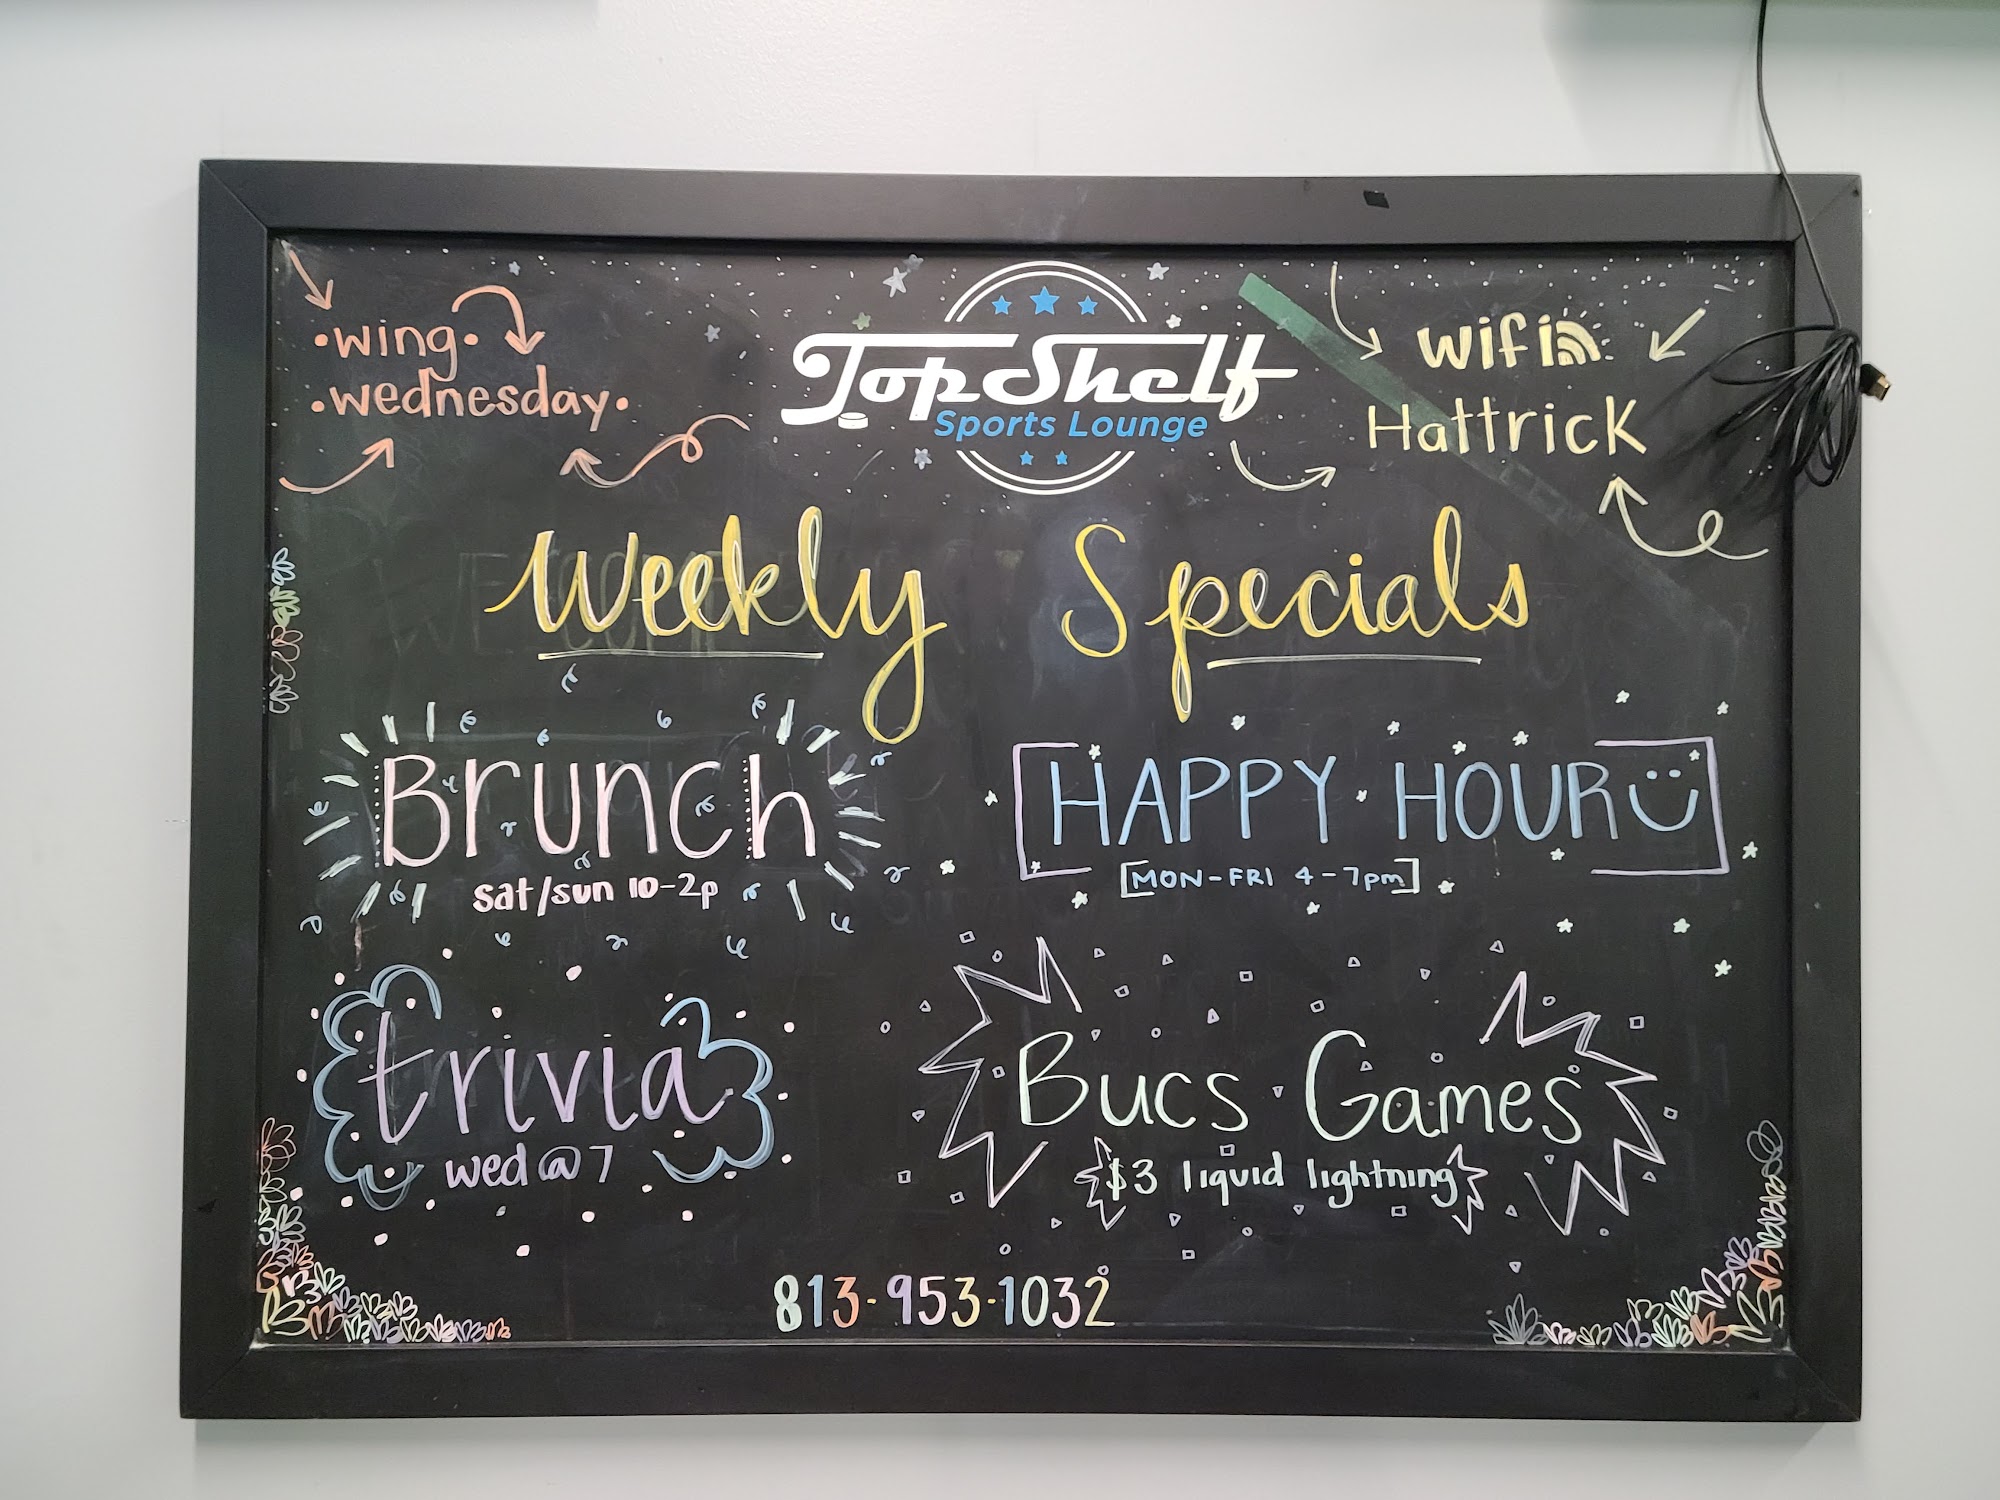 •wing•
•wednesday•
TopShelf
Sports Lounge
wifi
Hattrick
Weekly Specials
Brunch
sat/sun 10-2p
HAPPY HOUR
[MON-FRI 4-7pm]
trivia
wed @ 7
Bucs Games
$3 liquid lightning
813-953-1032